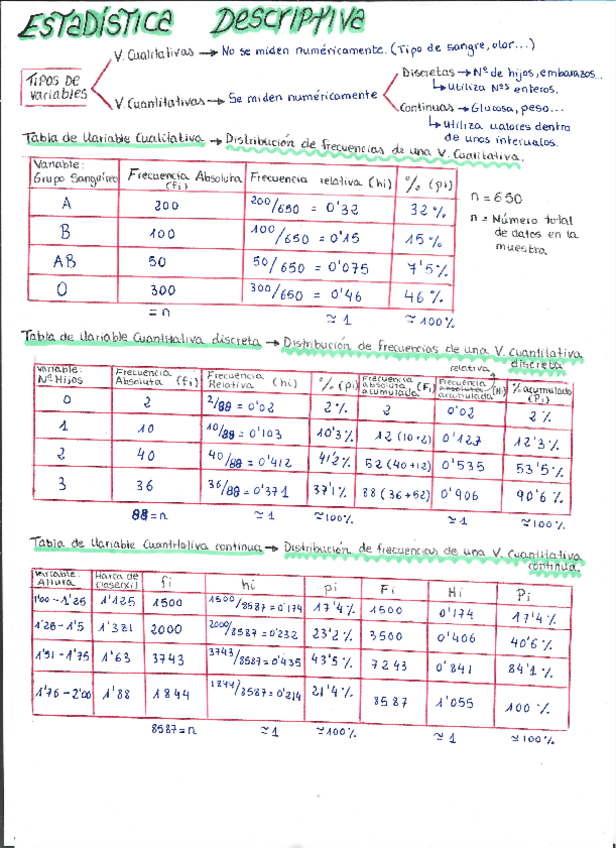 ESTADÍSTICA DESCRIPTIVA
TIPOS DE VARIABLES
V. Cualitativas → No se miden numéricamente. (Tipo de sangre, olor...)
V. Cuantitativas → Se miden numéricamente
Discretas → Nº de hijos, embarazos...
↳ Utiliza Nºs enteros.
Continuas → Glucosa, peso...
↳ Utiliza valores dentro de unos intervalos.
Tabla de Variable Cualitativa → Distribución de frecuencias de una V. Cualitativa.
Variable: Grupo Sanguíneo | Frecuencia Absoluta (fi) | Frecuencia relativa (hi) | % (pi)
A | 200 | 200/650 = 0'32 | 32%
B | 100 | 100/650 = 0'15 | 15%
AB | 50 | 50/650 = 0'075 | 7'5%
O | 300 | 300/650 = 0'46 | 46%
= n ≃ 1 ≃ 100%
n = 650
n = Número total de datos en la muestra
Tabla de Variable Cuantitativa discreta → Distribución de frecuencias de una V. Cuantitativa discreta
Variable: Nº Hijos | Frecuencia Absoluta (fi) | Frecuencia Relativa (hi) | % (pi) | Frecuencia absoluta acumulada (Fi) | Frecuencia absoluta relativa acumulada (Hi) | % acumulado (Pi)
0 | 2 | 2/88 = 0'02 | 2% | 2 | 0'02 | 2%
1 | 10 | 10/88 = 0'103 | 10'3% | 12 (10+2) | 0'127 | 12'3%
2 | 40 | 40/88 = 0'412 | 41'2% | 52 (40+12) | 0'535 | 53'5%
3 | 36 | 36/88 = 0'371 | 37'1% | 88 (36+52) | 0'906 | 90'6%
88 = n ≃ 1 ≃ 100% ≃ 1 ≃ 100%
Tabla de Variable Cuantitativa continua → Distribución de frecuencias de una V. Cuantitativa continua.
Variable: Altura | Marca de clase (xi) | fi | hi | pi | Fi | Hi | Pi
1'00 - 1'25 | 1'125 | 1500 | 1500/8587 = 0'174 | 17'4% | 1500 | 0'174 | 17'4%
1'26 - 1'5 | 1'381 | 2000 | 2000/8587 = 0'232 | 23'2% | 3500 | 0'406 | 40'6%
1'51 - 1'75 | 1'63 | 3743 | 3743/8587 = 0'435 | 43'5% | 7243 | 0'841 | 84'1%
1'76 - 2'00 | 1'88 | 1844 | 1844/8587 = 0'214 | 21'4% | 8587 | 1'055 | 100%
8587 = n ≃ 1 ≃ 100% ≃ 1 ≃ 100%